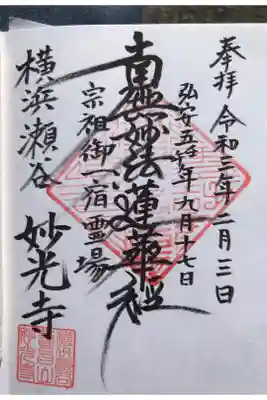 奉拝 令和三年二月三日
弘安五壬午年九月十七日
南無妙法蓮華経
宗祖御一宿霊場
横浜瀬谷 妙光寺